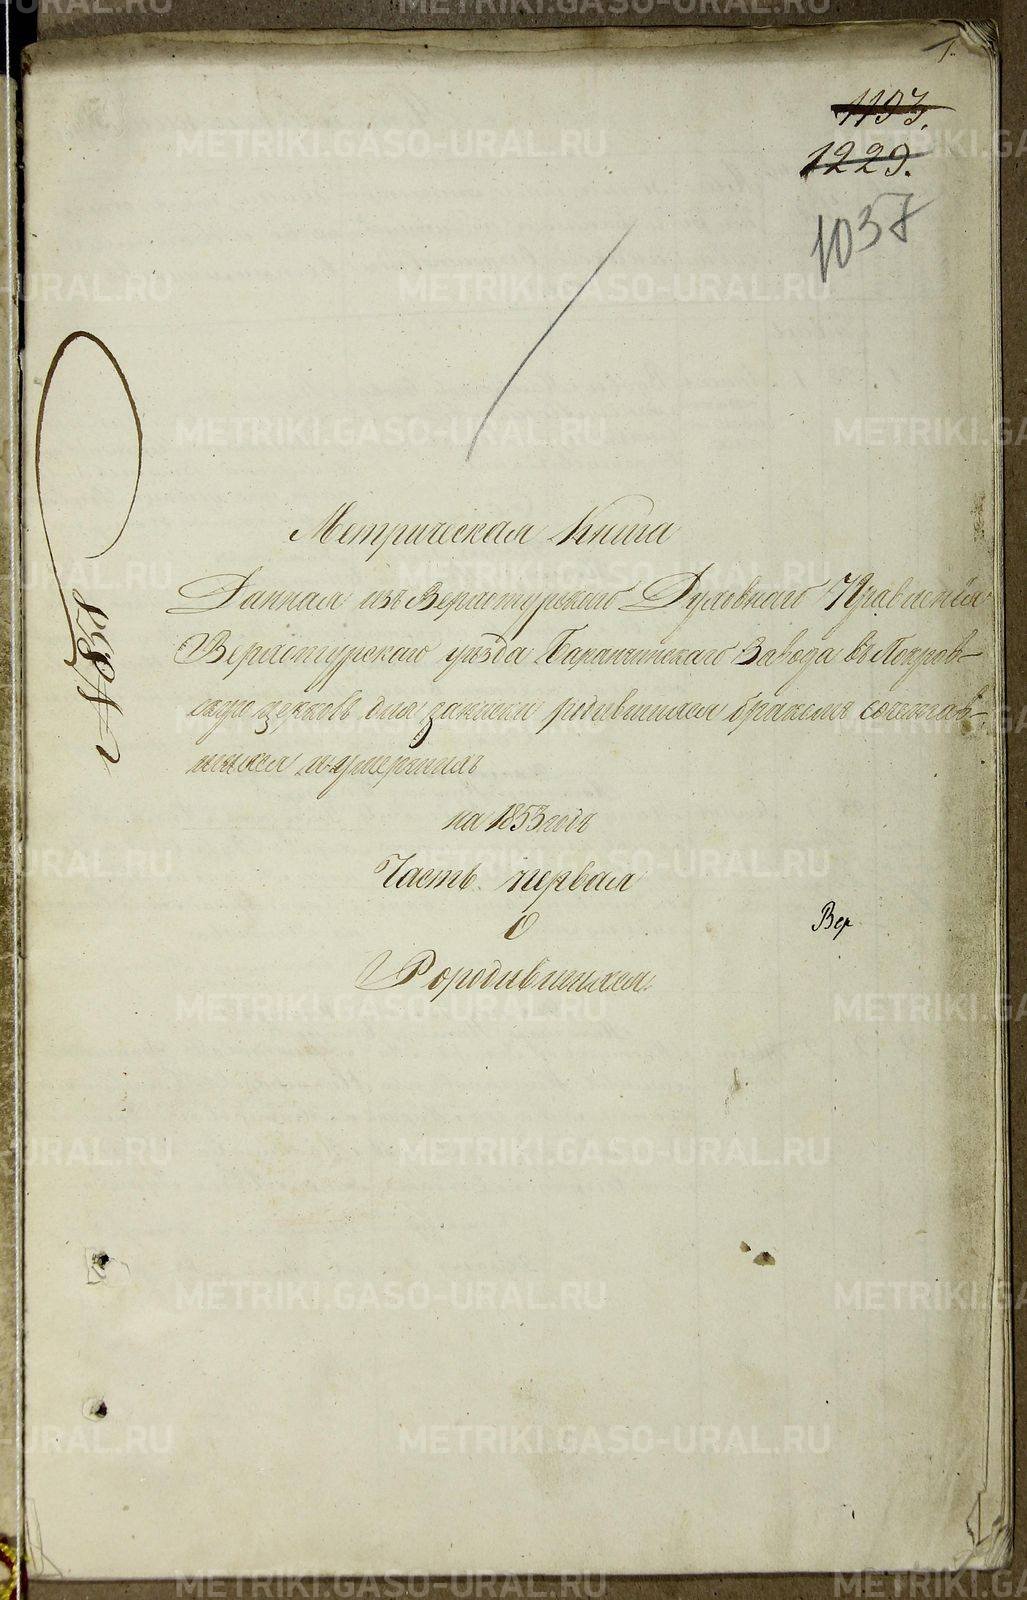 1.
1193.
1229.
1037
№ 838
Метрическая Книга
Данная изъ Верхотурскаго Духовнаго Правленія
Верхотурскаго уезда Баранчинскаго Завода въ Покров-
скую церковь для записки родившихся бракомъ сочетав-
шихся и умершихъ
на 1853 годъ
Часть первая
О
Вер
Рородившихся.
METRIKI.GASO-URAL.RU